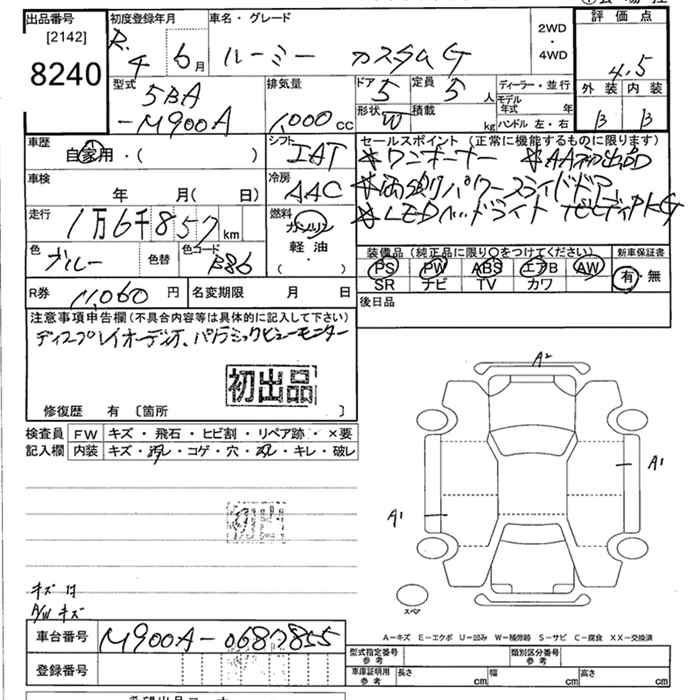 出品番号 初度登録年月 車名・グレード 評価点
[2142] R. 4 6月 ルーミー カスタムG 2WD・4WD 4.5
8240
型式 排気量 ドア 5 定員 5人 ディーラー・並行 外装 内装
5BA-M900A 1,000cc 形状 W 積載 kg モデル年式 年 B B
ハンドル 左・右
車歴 シフト セールスポイント(正常に機能するものに限ります)
自家用・( ) IAT *ワンオーナー *AA初出品
車検 年 月( 日) 冷房 AAC *両側パワースライドドア
走行 1万6千857km 燃料 ガソリン 軽油・( ) *LEDヘッドライト
色 ブルー 色替 色コード B86 装備品(純正品に限り○をつけてください) 新車保証書
PS PW ABS エアB AW 有・無
SR ナビ TV カワ
R券 11,060円 名変期限 月 日 後日品
注意事項申告欄(不具合内容等は具体的に記入して下さい)
ディスプレイオーディオ、パノラミックビューモニター
初出品
修復歴 有 〔箇所 〕
検査員 FW キズ・飛石・ヒビ割・リペア跡・×要
記入欄 内装 キズ・汚れ・コゲ・穴・スレ・キレ・破レ
A2
A1
A1
キズ
A/W キズ
スペア
A-キズ E-エクボ U-凹み W-補修跡 S-サビ C-腐食 XX-交換済
車台番号 M900A-0687855
登録番号
型式指定番号 参考 類別区分番号 参考
車庫証明用 参考 長さ cm 幅 cm 高さ cm